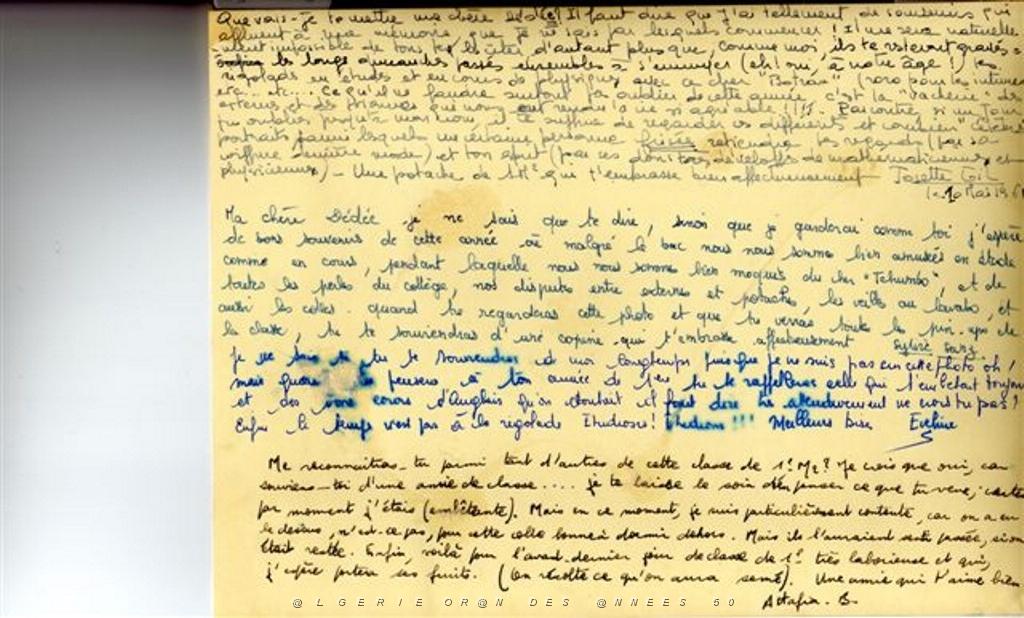 Que vais-je te mettre ma chère Dédée! Il faut dire que j'ai tellement de souvenirs qui
affluent à ma mémoire que je ne sais par lesquels commencer! Il me sera naturelle
-ment impossible de tous te les citer d'autant plus que, comme moi, ils te resteront gravés:
les longs dimanches passés ensembles à s'ennuyer (eh! oui, à notre âge!) les
rigolades en études et en cours de physique avec ce cher "Botras" (roro pour les intimes
etc... etc.... Ce qu'il ne faudra surtout pas oublier de cette année c'est la "vacherie" des
externes et des qui nous ont rendu la vie si agréable!!!! Par contre, si un jour
tu oubliais jusqu'à mon nom, il te suffira de regarder ces différents et
portraits parmi lesquels une certaine personne frisée retiendra tes regards (par sa
coiffure dernière mode) et ton esprit (par ses dons de mathématicienne et
physicienne) - Une potache de 1 M² qui t'embrasse bien affectueusement Josette Gil
1er Mai 196
Ma chère Dédée je ne sais que te dire, sinon que je garderai comme toi j'espère
de bons souvenirs de cette année où malgré le bac nous nous sommes bien amusées en étude
comme en cours, pendant laquelle nous nous sommes bien moqués du cher "Tchumbo", et de
toutes les perles du collège, nos disputes entre externes et potaches, les veilles au lavabo, et
aussi les colles. quand tu regarderas cette photo et que tu verras toute les pin-ups de
la classe, tu te souviendras d'une copine qui t'embrasse affectueusement Sylvie Sanz
Je ne sais si tu te souviendras de moi longtemps puisque je ne suis pas sur cette photo oh!
mais quand tu penseras à ton année de 1ère tu te rappelleras celle qui t'embêtait toujours
et des cours d'Anglais qu'on écoutait il faut dire très attentivement ne crois tu pas?
Enfin le temps n'est pas à la rigolade Etudions! Etudions!!! Meilleurs bises Eveline
Me reconnaîtras-tu parmi tant d'autres de cette classe de 1° M2? Je crois que oui, car
souviens-toi d'une année de classe.... je te laisse le soin d'en penser ce que tu veux, certes
par moment j'étais (embêtante). Mais en ce moment, je suis particulièrement contente, car on a eu
le dessus, n'est-ce pas, pour cette colle bonne à dormir dehors. Mais ils l'auraient sentie passée, si on
était restée. Enfin, voilà pour l'avant-dernier jour de classe de 1° très laborieuse et qui,
j'espère portera ses fruits. (On récolte ce qu'on aura semé). Une amie qui t'aime bien
Attafia. B.
@LGERIE OR@N DES @NNEES 50